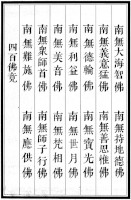 南無大海智佛 南無持地德佛
南無義意猛佛 南無善思惟佛
南無德輪佛 南無寶光佛
南無利益佛 南無世月佛
南無美音佛 南無梵相佛
南無眾師首佛 南無師子行佛
南無難施佛 南無應供佛
四百佛竟